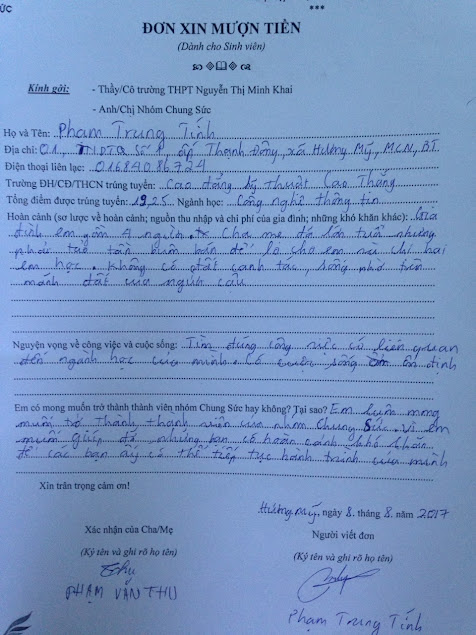 ỨC
***
ĐƠN XIN MƯỢN TIỀN
(Dành cho Sinh viên)
Kính gởi: - Thầy/Cô trường THPT Nguyễn Thị Minh Khai
- Anh/Chị Nhóm Chung Sức
Họ và Tên: Phạm Trung Tính
Địa chỉ: 01, TNPTQ Số 1, ấp Thạnh Đông, xã Hương Mỹ, MCN, BT.
Điện thoại liên lạc: 01684086724
Trường ĐH/CĐ/THCN trúng tuyển: Cao đẳng kỹ thuật Cao Thắng
Tổng điểm được trúng tuyển: 19,25. Ngành học: Công nghệ thông tin
Hoàn cảnh (sơ lược về hoàn cảnh; nguồn thu nhập và chi phí của gia đình; những khó khăn khác): Gia
đình em gồm 4 người. Cha mẹ đã lớn tuổi nhưng
phải tảo tần buôn bán để lo cho em và chị hai
em học. Không có đất canh tác, sống nhờ trên
mảnh đất của người cậu
Nguyện vọng về công việc và cuộc sống: Tìm đúng công việc có liên quan
đến ngành học của mình. Có cuộc sống ổn định
Em có mong muốn trở thành thành viên nhóm Chung Sức hay không? Tại sao? Em luôn mong
muốn trở thành thành viên của nhóm Chung Sức vì em
muốn giúp đỡ những bạn có hoàn cảnh khó khăn
để các bạn ấy có thể tiếp tục hành trình của mình
Xin trân trọng cảm ơn!
Hương Mỹ, ngày 8. tháng 8. năm 2017
Xác nhận của Cha/Mẹ
Người viết đơn
(Ký tên và ghi rõ họ tên)
(Ký tên và ghi rõ họ tên)
Thu
PHẠM VĂN THU
Phạm Trung Tính